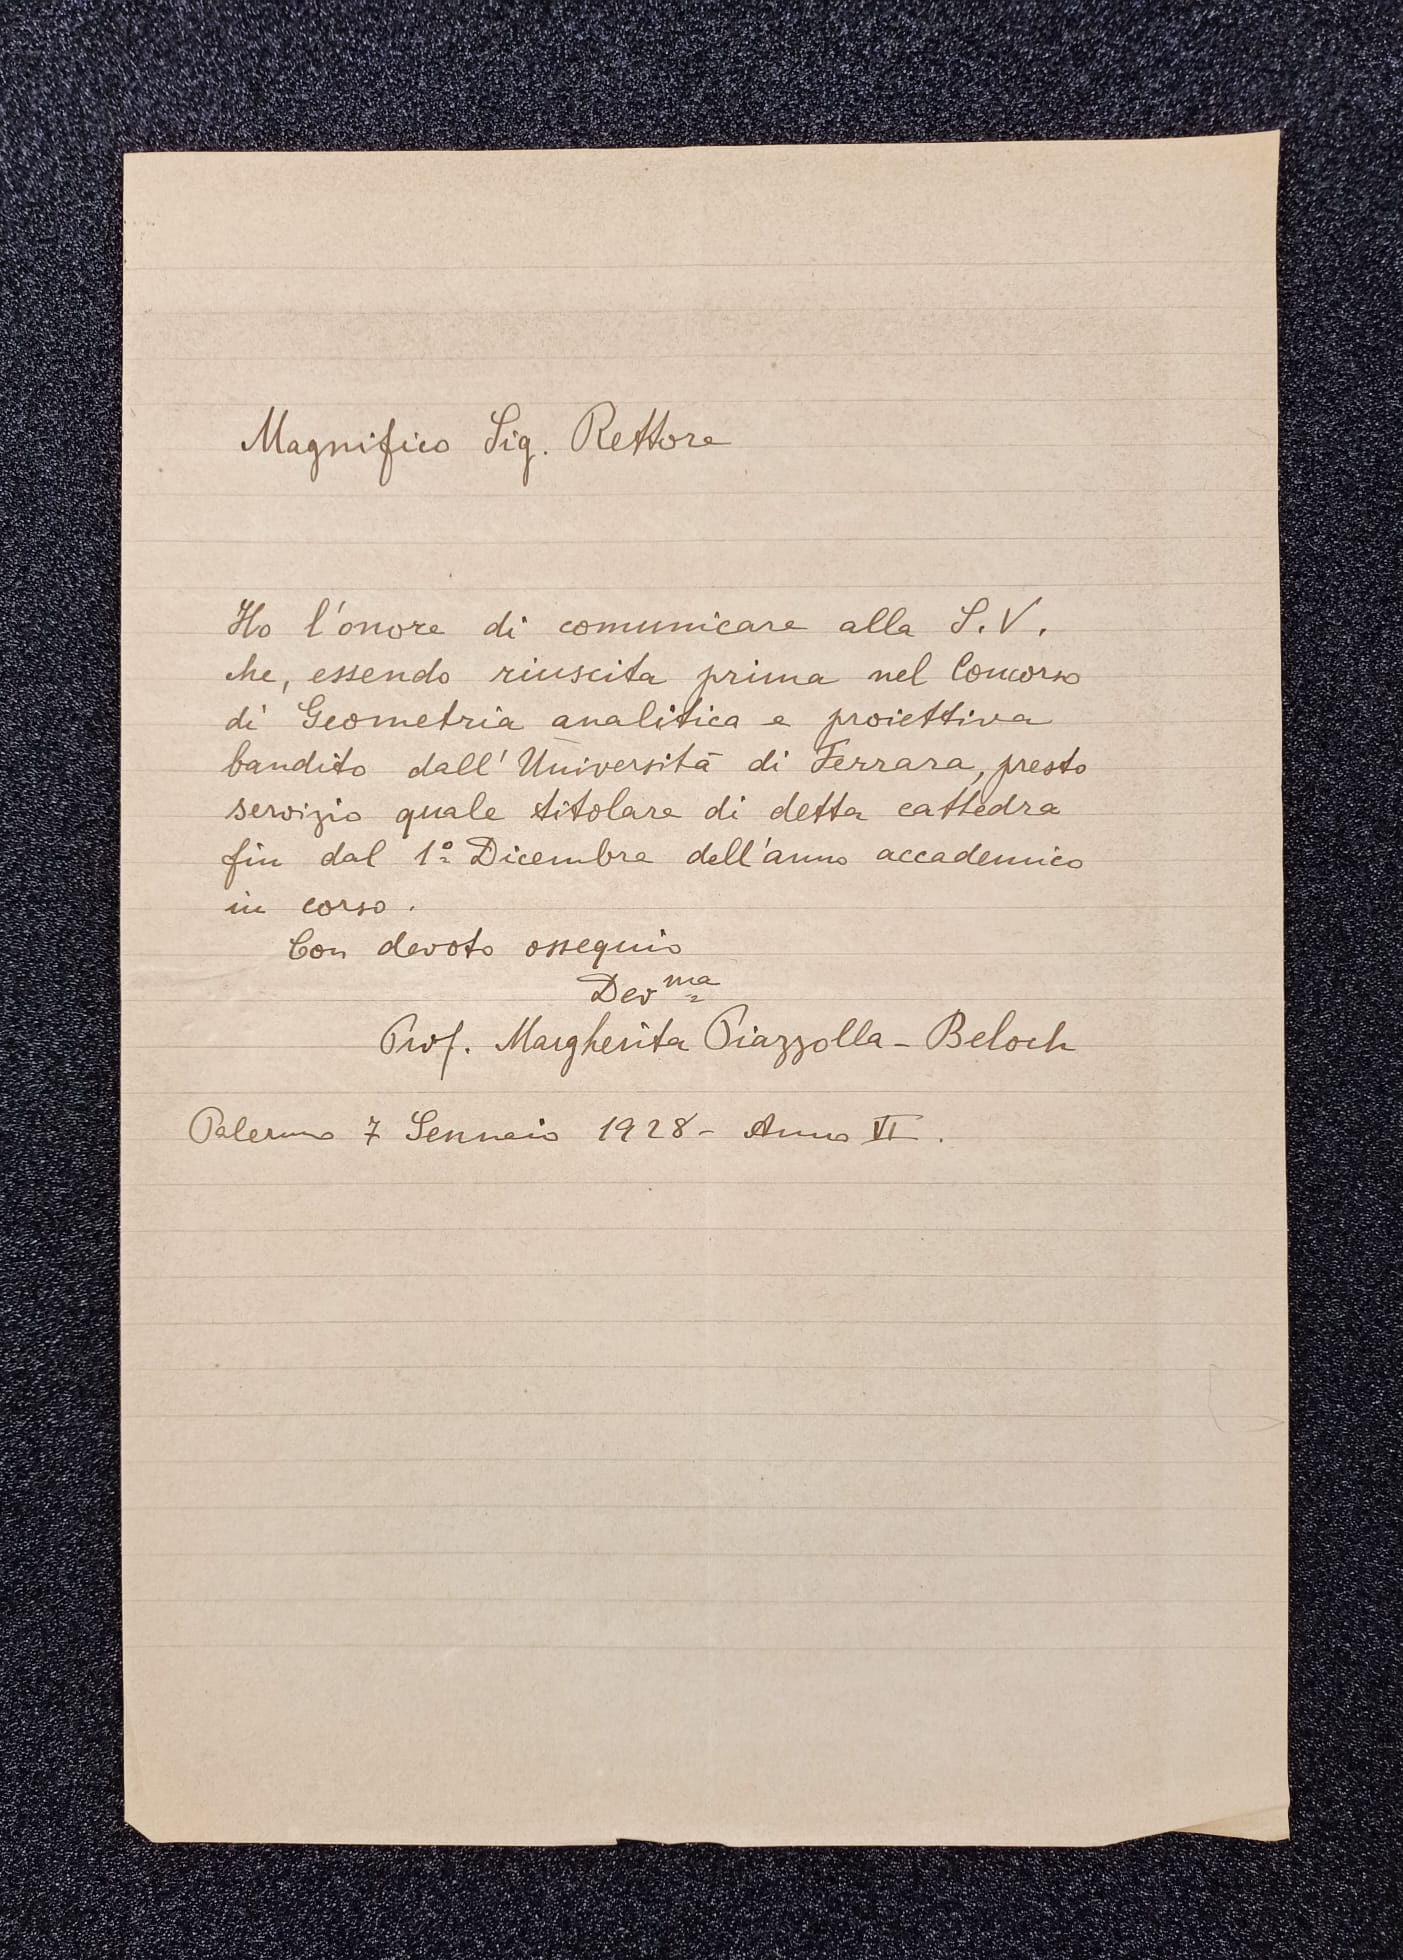 Magnifico Sig. Rettore
Ho l'onore di comunicare alla S.V.
che, essendo riuscita prima nel Concorso
di Geometria analitica e proiettiva
bandito dall'Università di Ferrara, presto
servizio quale titolare di detta cattedra
fin dal 1º Dicembre dell'anno accademico
in corso.
Con devoto ossequio
Devma
Prof. Margherita Piazzolla - Beloch
Palermo 7 Gennaio 1928 - Anno VI.